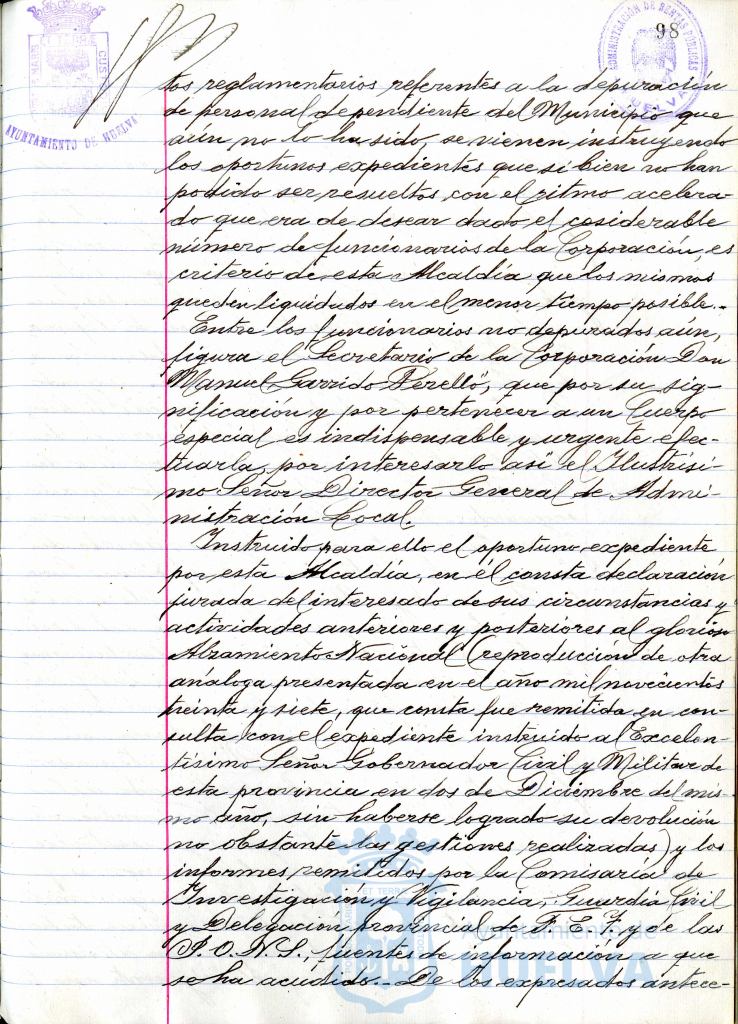 98
AYUNTAMIENTO DE HUELVA
ADMINISTRACIÓN DE RENTAS PÚBLICAS
HUELVA
tos reglamentarios referentes a la depuración
de personal dependiente del Municipio que
aún no lo ha sido, se vienen instruyendo
los oportunos expedientes que si bien no han
podido ser resueltos con el ritmo acelera-
do que era de desear dado el cosiderable
número de funcionarios de la Corporación, es
criterio de esta Alcaldía que los mismos
queden liquidados en el menor tiempo posible.-
Entre los funcionarios no depurados aún,
figura el Secretario de la Corporación Don
Manuel Garrido Perelló, que por su sig-
nificación y por pertenecer a un Cuerpo
especial es indispensable y urgente efec-
tuarla, por interesarlo así el Ilustrísi-
mo Señor Director General de Admi-
nistración Local.
Instruido para ello el oportuno expediente
por esta Alcaldía, en él consta declaración
jurada del interesado de sus circunstancias y
actividades anteriores y posteriores al glorioso
Alzamiento Nacional (reproducción de otra
análoga presentada en el año mil novecientos
treinta y siete, que consta fue remitida en con-
sulta con el expediente instruido al Excelen-
tísimo Señor Gobernador Civil y Militar de
esta provincia en dos de Diciembre del mis-
mo año, sin haberse logrado su devolución
no obstante las gestiones realizadas) y los
informes remitidos por la Comisaría de
Investigación y Vigilancia, Guardia Civil
y Delegación provincial de F. E. T. y de las
J. O. N. S., fuentes de información a que
se ha acudido.- De los expresados antece-
Ayuntamiento de
HUELVA